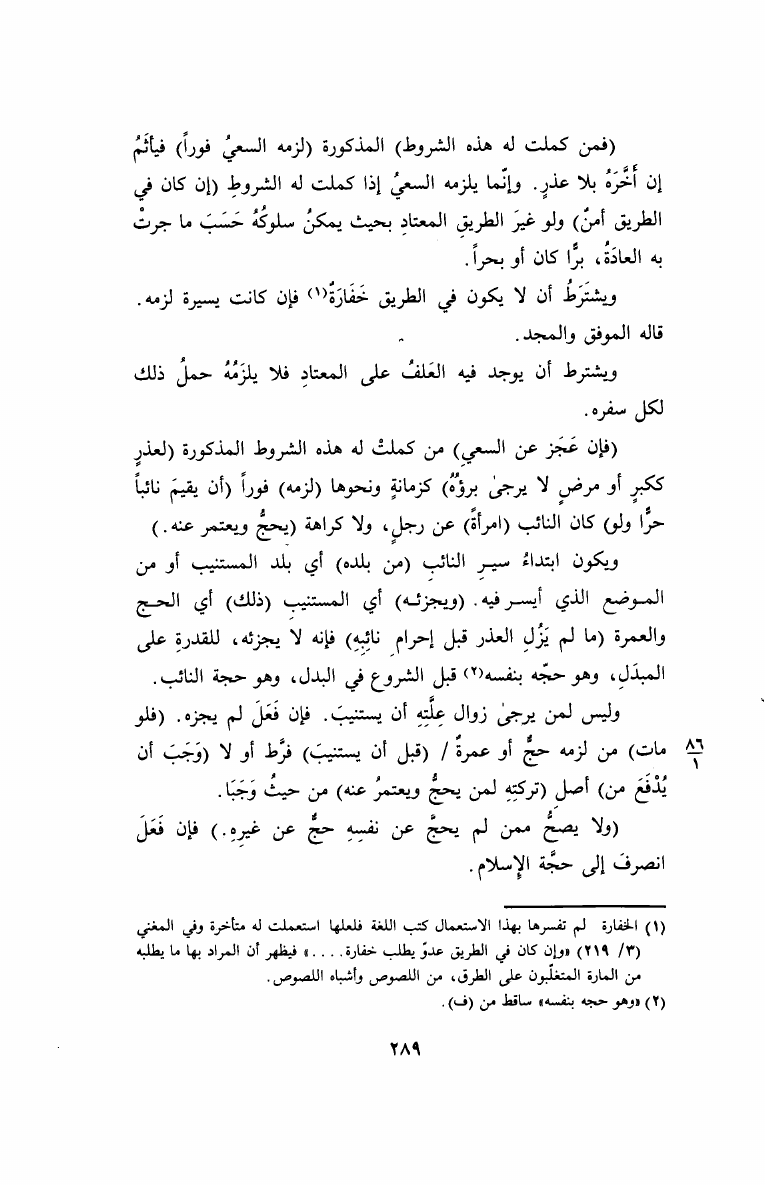 (فمن كملت له هذه الشروط) المذكورة (لزمه السعيُ فوراً) فيأثَمُ
إن أَخَّرَهُ بلا عذرٍ. وإنّما يلزمه السعيُ إذا كملت له الشروطِ (إن كان في
الطريق أمنٌ) ولو غيرَ الطريقِ المعتادِ بحيث يمكنُ سلوكُهُ حَسَبَ ما جرتْ
به العادَةُ، برًّا كان أو بحراً.
ويشتَرَطُ أن لا يكون في الطريق خَفَارَةٌ(١) فإن كانت يسيرة لزمه.
قاله الموفق والمجد.
ويشترط أن يوجد فيه العَلفُ على المعتادِ فلا يلزَمُهُ حملُ ذلك
لكل سفره.
(فإن عَجَز عن السعي) من كملتْ له هذه الشروط المذكورة (لعذرٍ
ككبرٍ أو مرضٍ لا يرجىٰ برؤُهُ) كزمانةٍ ونحوها (لزمه) فوراً (أن يقيمَ نائباً
حرًّا ولو) كان النائب (امرأةً) عن رجلٍ، ولا كراهة (يحجُّ ويعتمر عنه.)
ويكون ابتداءُ سيرِ النائبِ (من بلده) أي بلد المستنيب أو من
الموضع الذي أيسر فيه. (ويجزئه) أي المستنيبِ (ذلك) أي الحج
والعمرة (ما لم يَزُلِ العذر قبل إحرامِ نائِبِهِ) فإنه لا يجزئه، للقدرةِ على
المبدَلِ، وهو حجّه بنفسه(٢) قبل الشروع في البدل، وهو حجة النائب.
وليس لمن يرجىٰ زوال علَّتِهِ أن يستنيبَ. فإن فَعَلَ لم يجزه. (فلو
مات) من لزمه حجٌّ أو عمرةٌ / (قبل أن يستنيبَ) فرَّط أو لا (وَجَبَ أن
٨٦
١
يُدْفَعَ من) أصل (تركتِهِ لمن يحجُّ ويعتمرُ عنه) من حيثُ وَجَبَا.
(ولا يصحُّ ممن لم يحجَّ عن نفسِهِ حجٌّ عن غيرِهِ.) فإن فَعَلَ
انصرفَ إلى حجَّة الإسلام.
(١) الخفارة لم تفسرها بهذا الاستعمال كتب اللغة فلعلها استعملت له متأخرة وفي المغني
(٣/ ٢١٩) «وإن كان في الطريق عدوّ يطلب خفارة....» فيظهر أن المراد بها ما يطلبه
من المارة المتغلّبون على الطرق، من اللصوص وأشباه اللصوص.
(٢) «وهو حجه بنفسه» ساقط من (ف).
٢٨٩